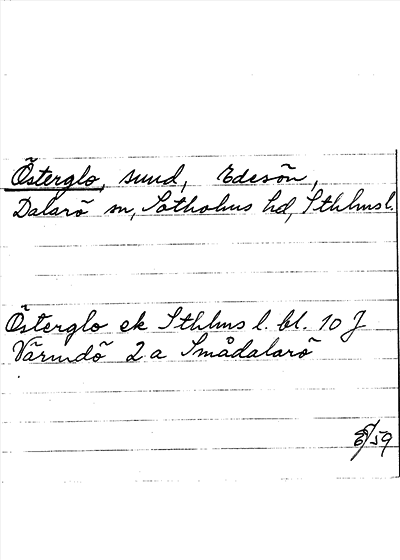 Österglo, sund, Edesön,
Dalarö sn, Sotholms hd, Sthlms l.
Österglo ek Sthlms l. bl. 10 J
Värmdö 2 a Smådalarö
/59